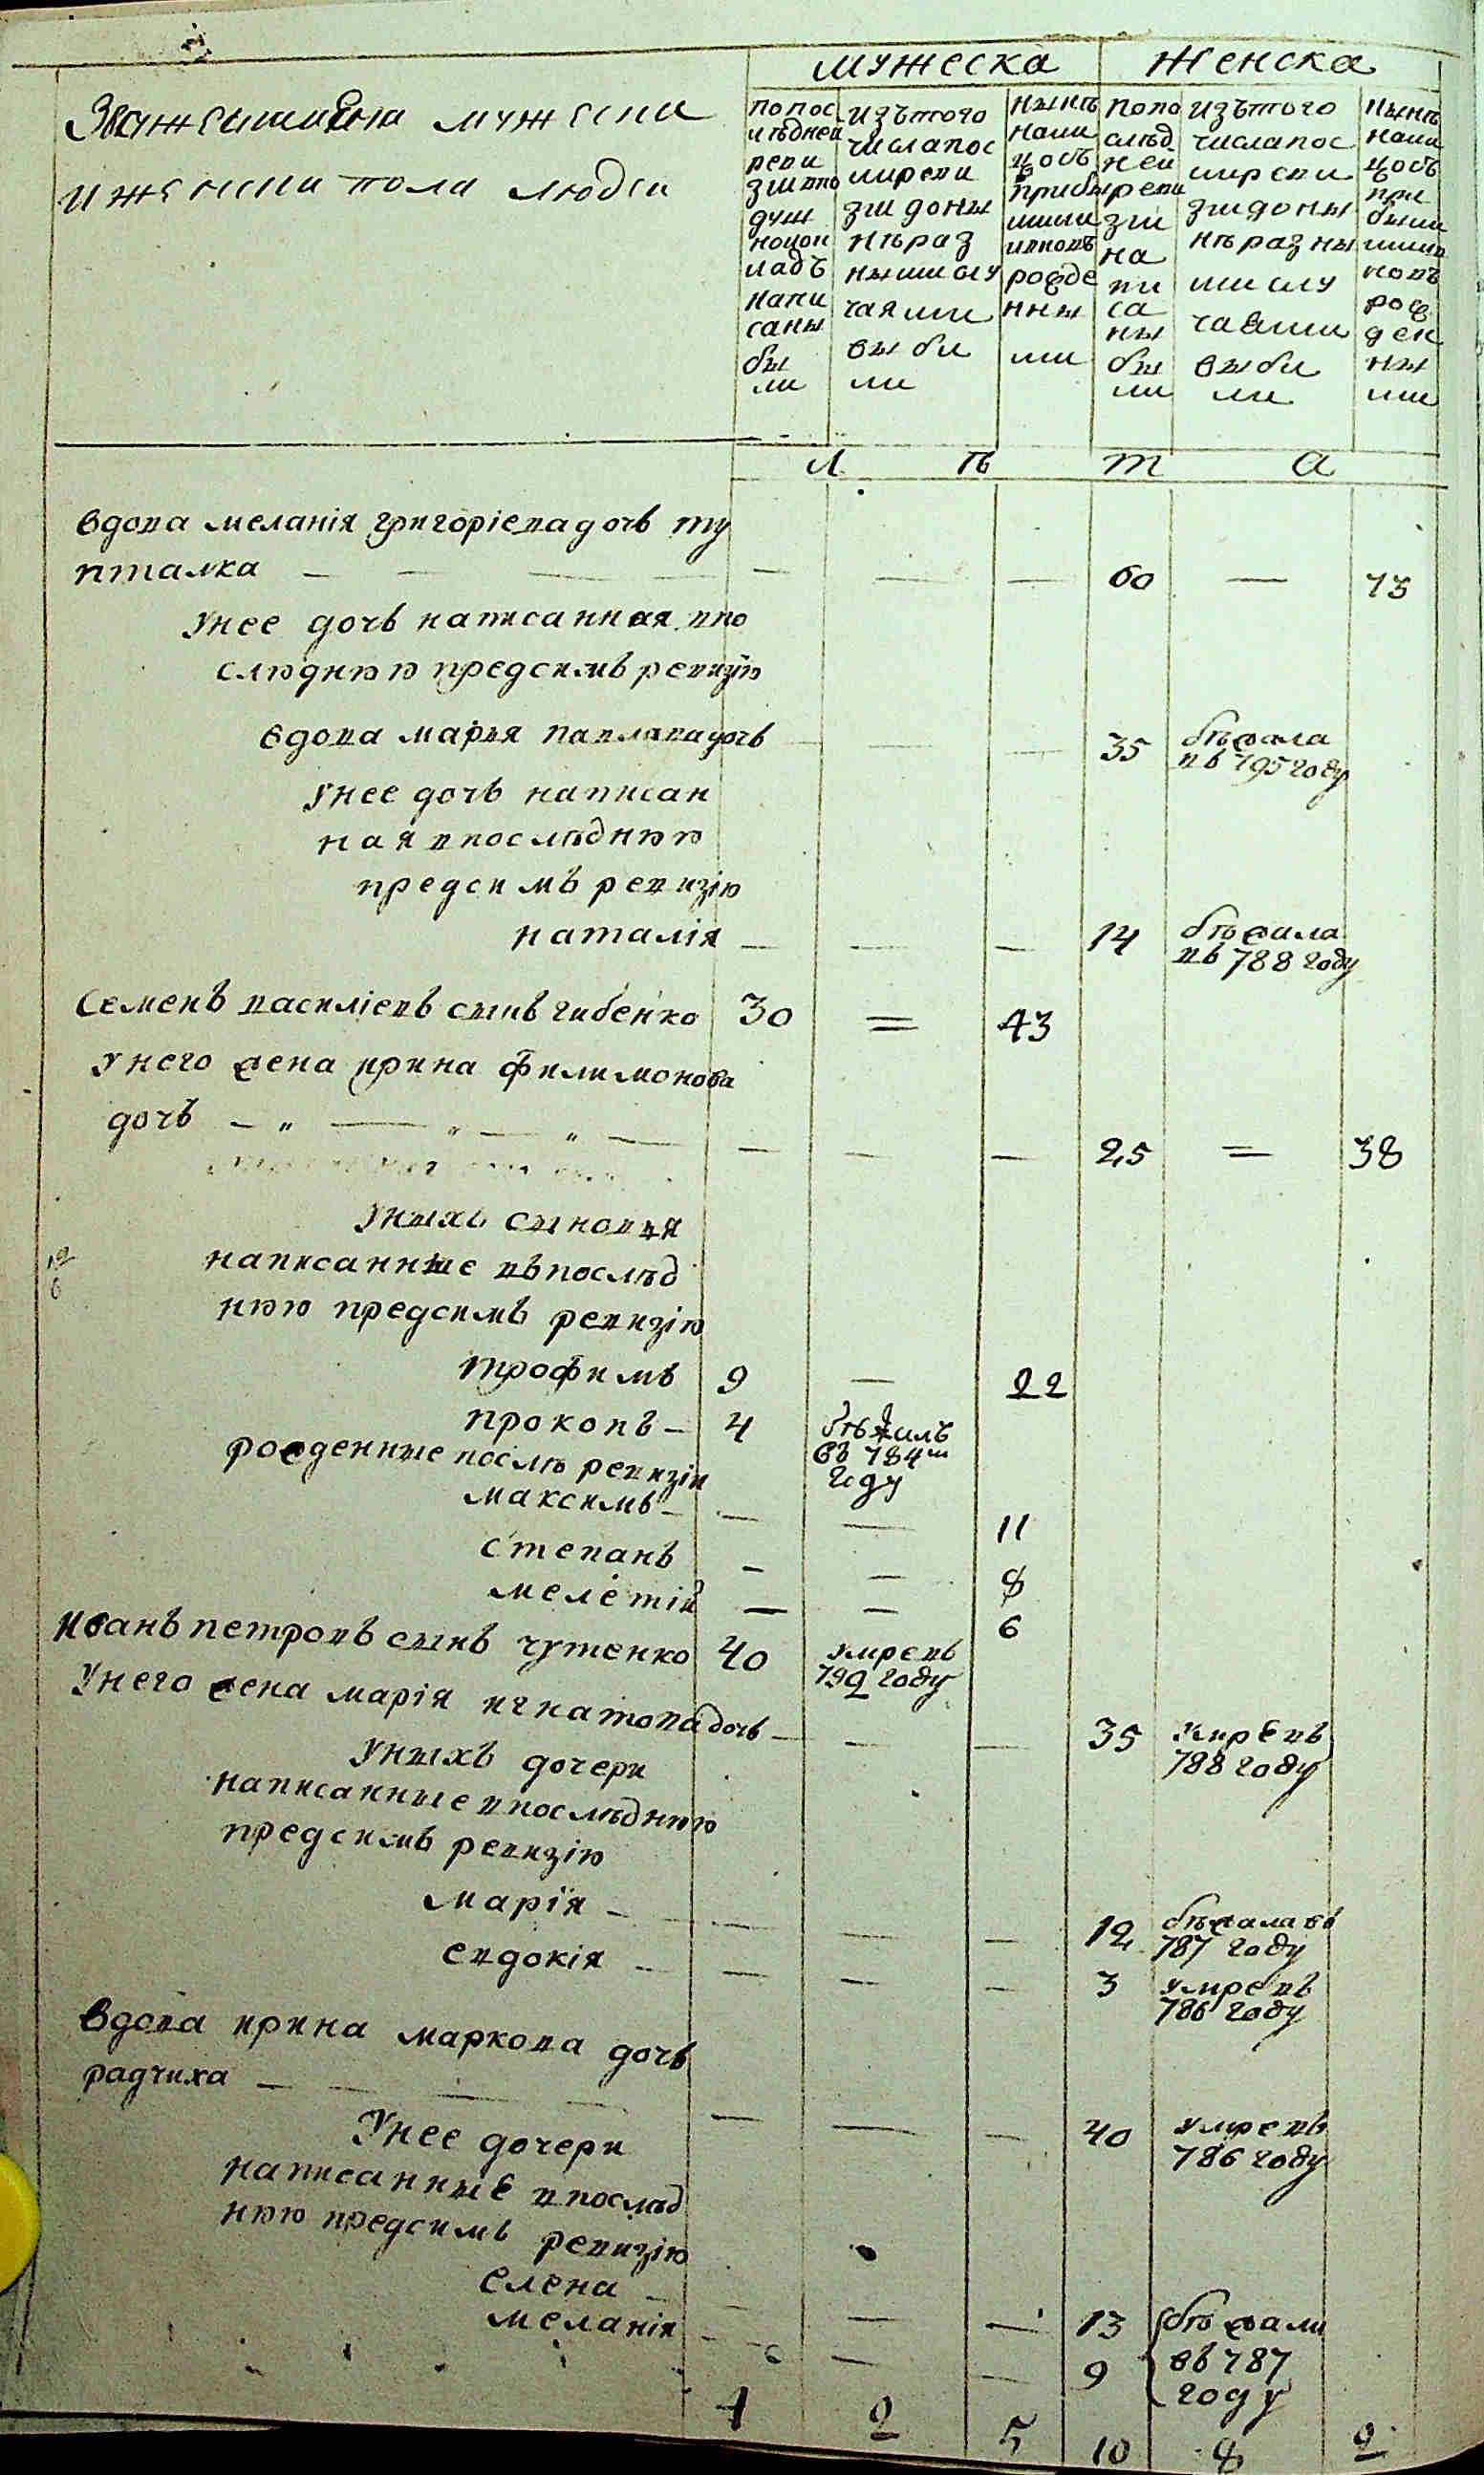 мужеска женска
мужеска
и женска пола людеи
попос
лѣдней
реви
зии по
душ
ному ок
ладъ
напи
саны
бы
ли
изътого
числапос
лиреви
зии доны
нѣраз
нымислу
чаями
выбы
ли
нынѣ
нали
цо съ
прибы
лыми
ивновъ
рожде
нны
ми
попо
слѣд
ней
реви
зии
на
пи
са
ны
бы
ли
изътого
числапос
лиреви
зиидоны
нѣразны
мислу
чаями
выбы
ли
нынѣ
нали
цосъ
при
былы
мии
новъ
рож
ден
ны
ми
л ѣ т а
вдова меланія григоріевадочь ту
пталка — — — — — — — 60 — 73
унее дочь написанная впо
слѣднюю предсимъ ревизію
вдова марья павловадочь — — — 35 бѣжала
въ 795 году
унее дочь написан
ная впослѣднюю
предсимъ ревизію
наталія — — — 14 бѣжала
въ 788 году
семенъ василіевъ сынъ чибенко 30 = 43
у него жена ирина филимонова
дочь — „ — „ — „ — — — — 25 = 38
унихъ сыновья
написанные въпослѣд
нюю предсимъ ревизію
трофимъ 9 — 22
прокопъ — 4 бѣжилъ
въ 784м
году
рожденные послѣ ревизіи
максимъ — — — 11
степанъ — — 8
мелетій — — 6
иванъ петровъ сынъ чутенко 40 умревъ
792 году
унего жена марія игнатовадочь — — — 35 умревъ
788 году
унихъ дочери
написанные впослѣднюю
предсимъ ревизію
марія — — — — 12 бѣжала въ
787 году
евдокія — — — — 3 умревъ
786 году
вдова ирина маркова дочь
радчиха — — — — — — — 40 умревъ
786 году
Унее дочери
написанные впослѣд
нюю предсимъ ревизію
елена — — — — 13 бѣжали
меланія — — — 9 въ 787
году
4 2 5 10 8 2